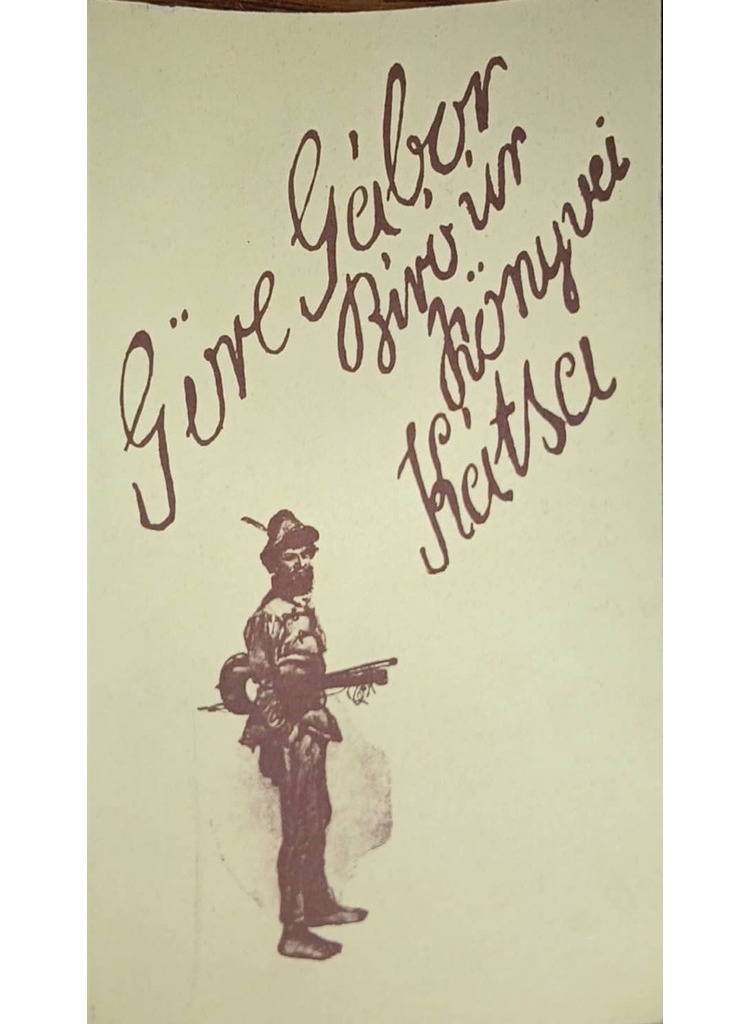 Göre Gábor
Biró úr
könyvei
Kátsa